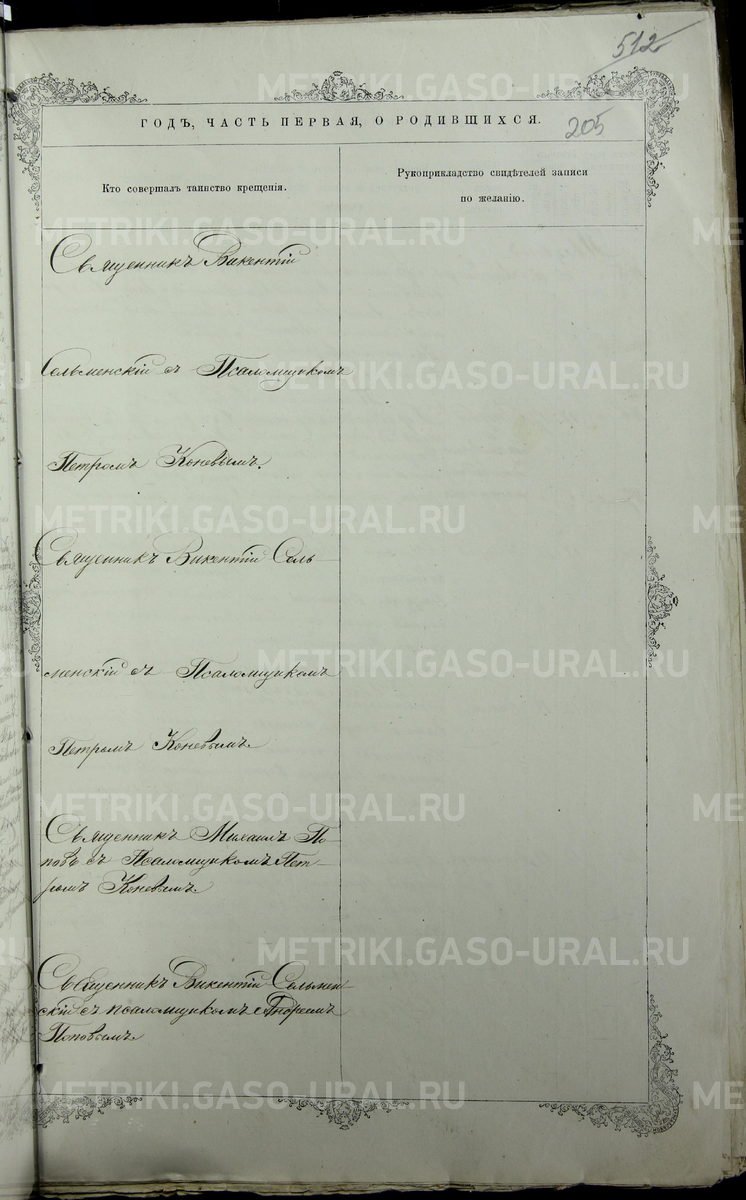 512
205
ГОДЪ, ЧАСТЬ ПЕРВАЯ, О РОДИВШИХСЯ.
Кто совершалъ таинство крещенія.
Рукоприкладство свидѣтелей записи
по желанію.
Священникъ Викентій
Сельменскій съ Псаломщикомъ
Петромъ Коневымъ.
Священникъ Викентій Сель
менскій съ Псаломщикомъ
Петромъ Коневымъ
Священникъ Михаилъ По-
повъ съ Псаломщикомъ Пет-
ромъ Коневымъ
Священникъ Викентій Сельмен
скій съ псаломщикомъ Андреемъ
Поповымъ
METRIKI.GASO-URAL.RU